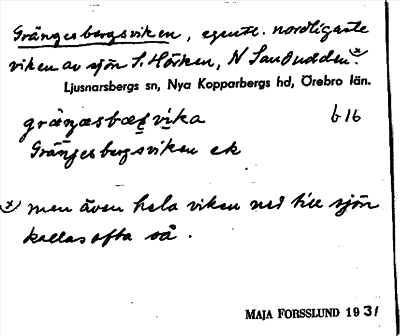 Grängesbergsviken, egentl. nordligaste
viken av sjön S. Hörken, N Sandudden.
Ljusnarsbergs sn, Nya Kopparbergs hd, Örebro län.
b 16
Grängesbergsviken ek
x) men även hela viken ned till sjön
kallas ofta så.
MAJA FORSSLUND 1931